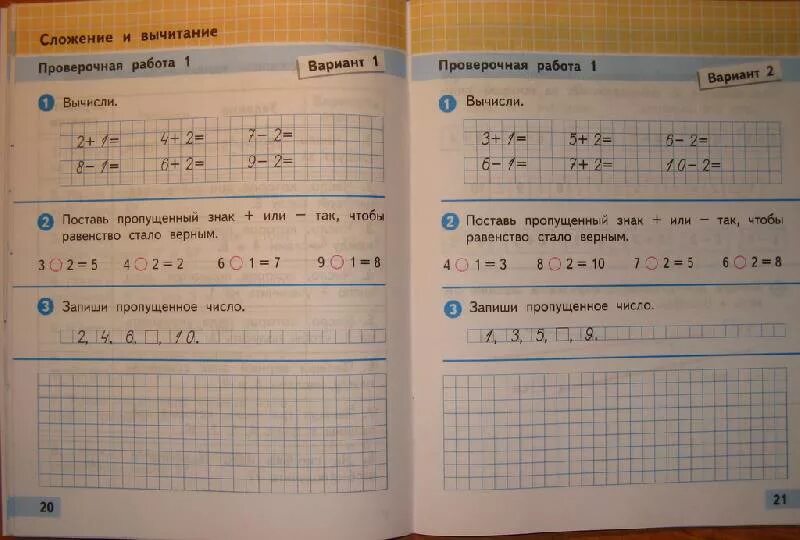 Сложение и вычитание
Проверочная работа 1
Вариант 1
1 Вычисли.
2+1= 4+2= 7-2=
8-1= 6+2= 9-2=
2 Поставь пропущенный знак + или − так, чтобы
равенство стало верным.
3 ○ 2 = 5 4 ○ 2 = 2 6 ○ 1 = 7 9 ○ 1 = 8
3 Запиши пропущенное число.
2, 4, 6, □, 10.
20
Проверочная работа 1
Вариант 2
1 Вычисли.
3+1= 5+2= 6-2=
6-1= 7+2= 10-2=
2 Поставь пропущенный знак + или − так, чтобы
равенство стало верным.
4 ○ 1 = 3 8 ○ 2 = 10 7 ○ 2 = 5 6 ○ 2 = 8
3 Запиши пропущенное число.
1, 3, 5, □, 9.
21